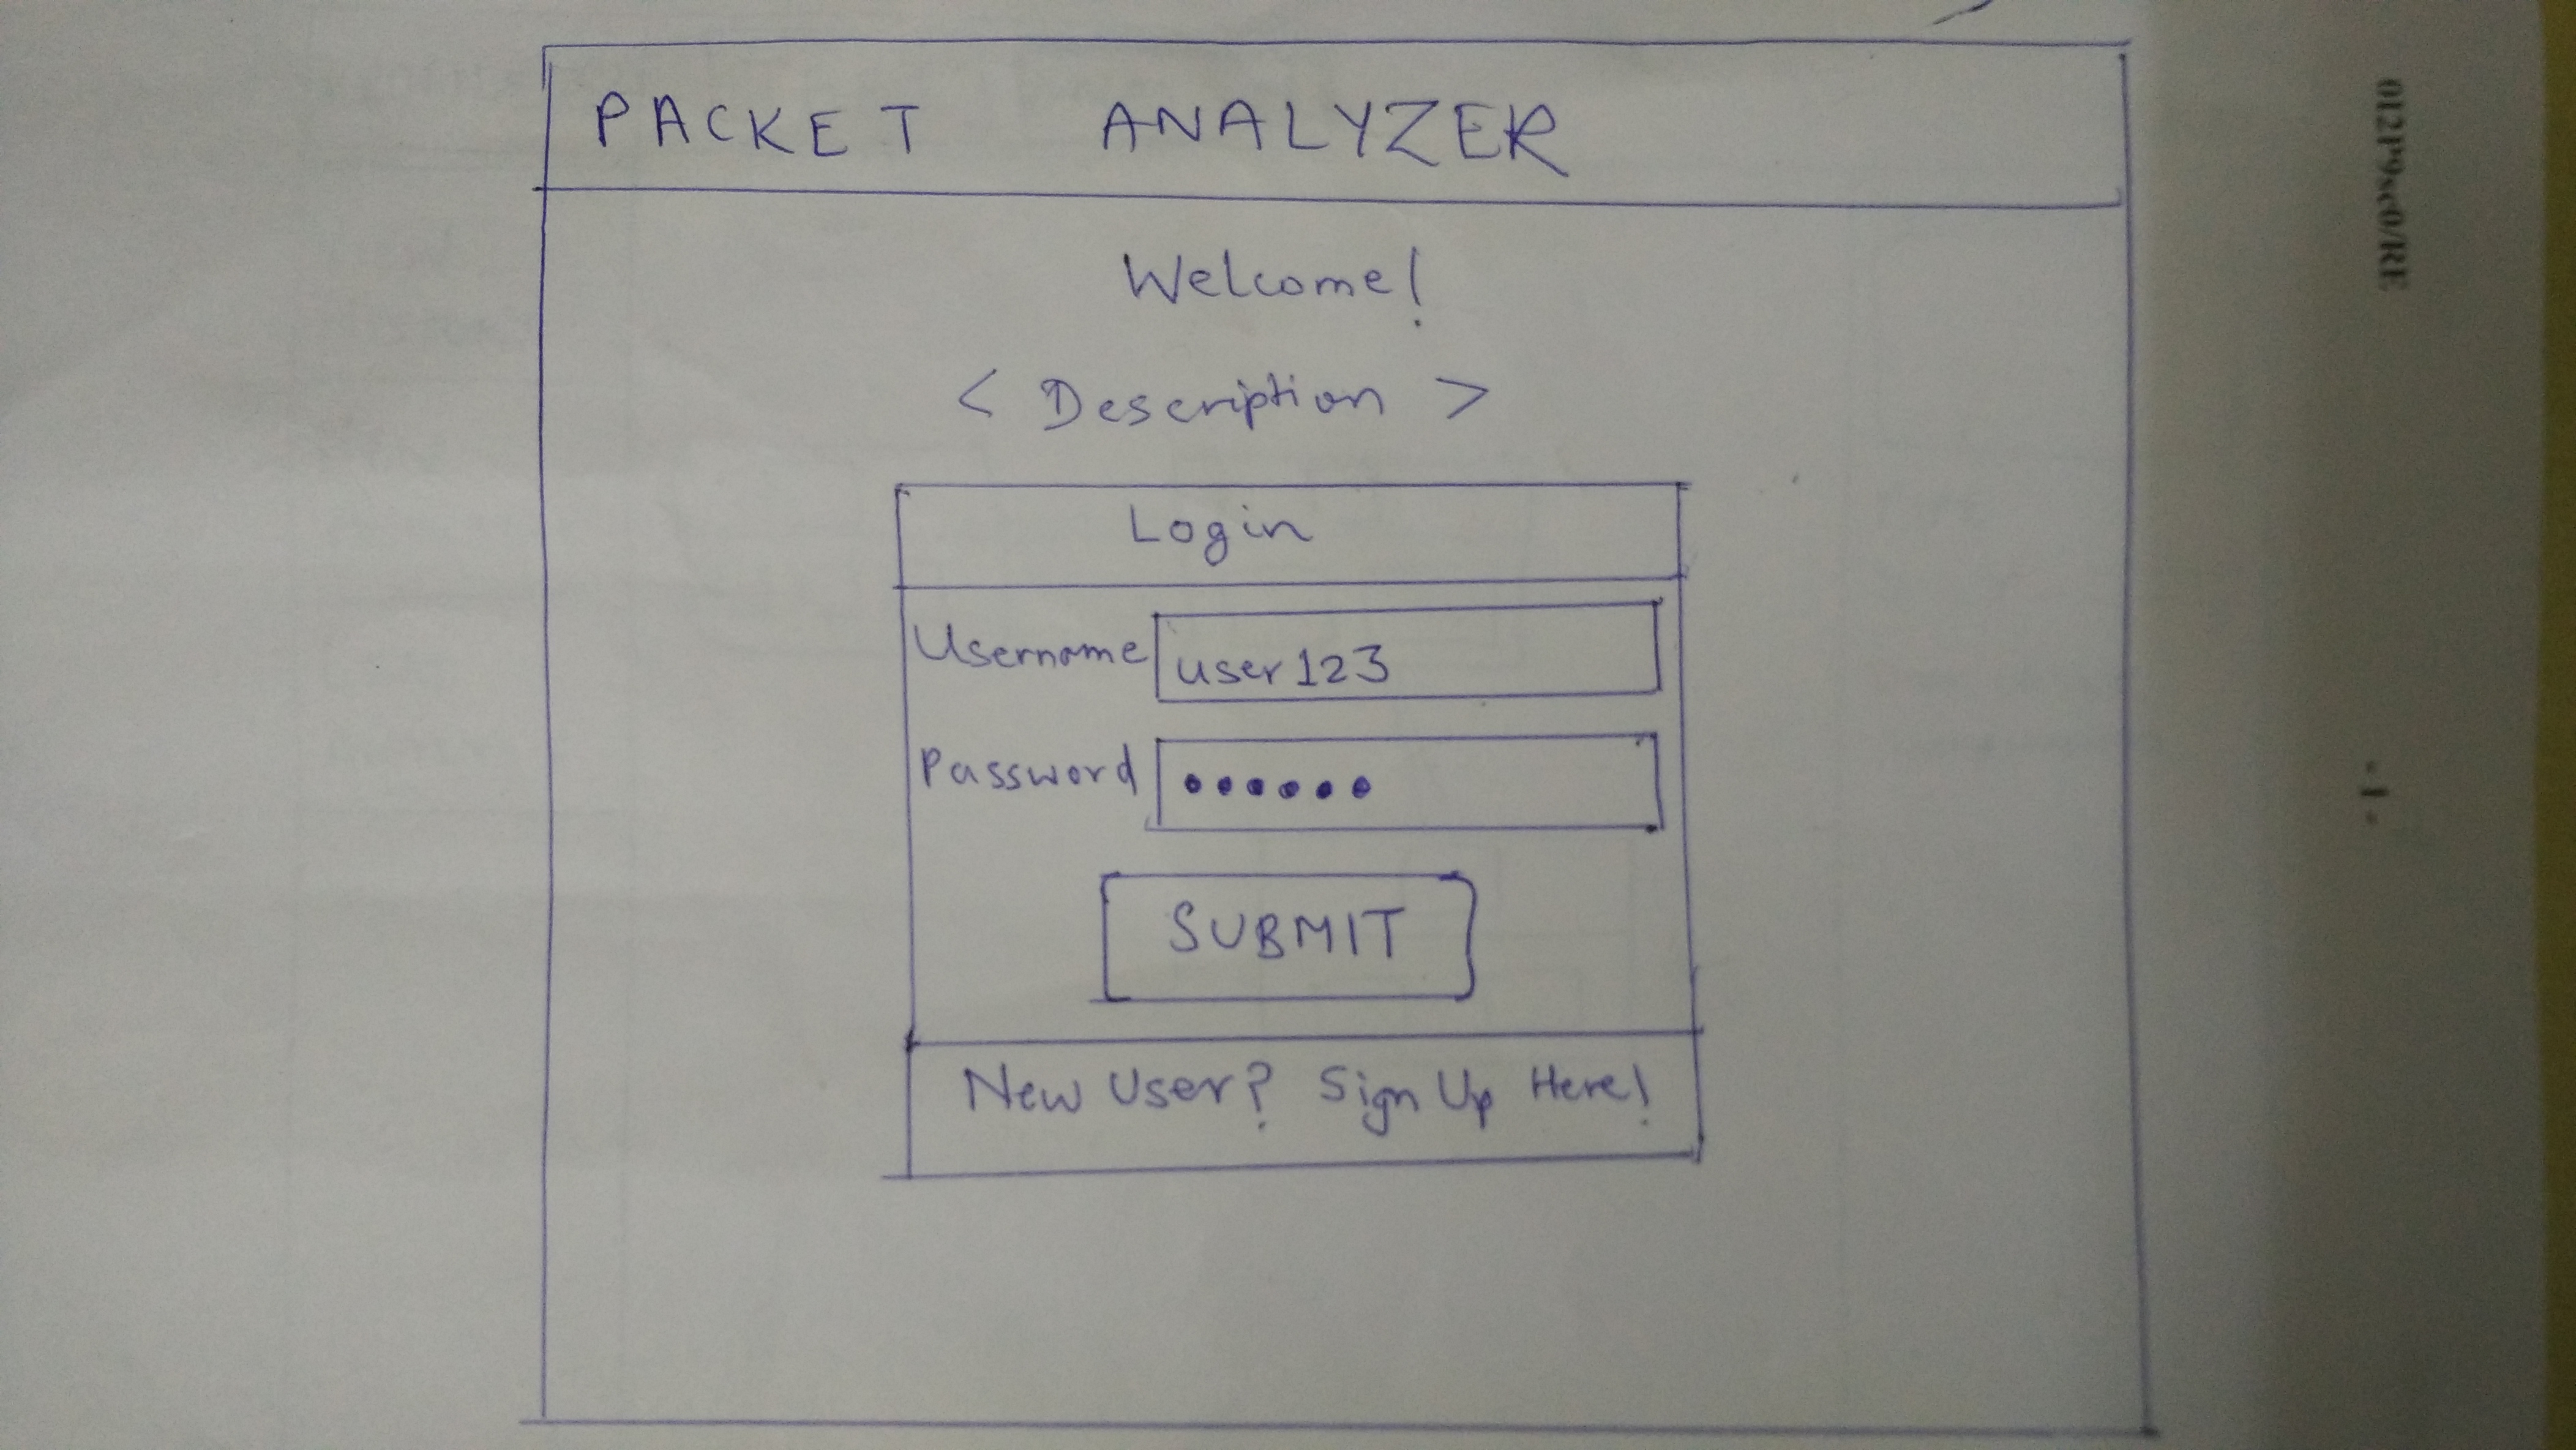 PACKET ANALYZER
Welcome!
< Description >
Login
Username user123
Password ••••••
SUBMIT
New User? Sign Up Here!
- 1 -